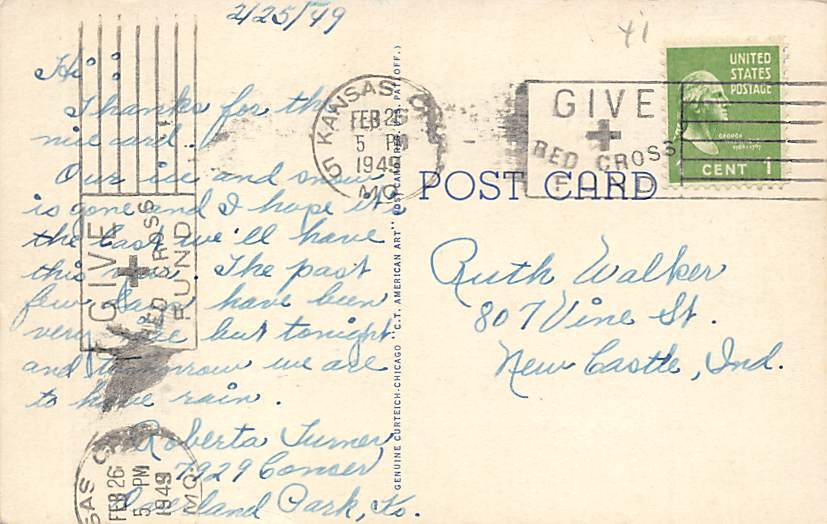 2/25/49
Hi:
Thanks for the
nice card.
Our ice and snow
is gone and I hope it's
the last we'll have
this year. The past
few days have been
very nice but tonight
and tomorrow we are
to have rain.
Roberta Turner
7929 Conser
Overland Park, Ks.
KANSAS CITY
5
FEB 26
5 PM
1949
MO.
GIVE
RED CROSS
FUND
UNITED
STATES
POSTAGE
GEORGE
CENT 1
POST CARD
Ruth Walker
807 Vine St.
New Castle, Ind.
GENUINE CURTEICH-CHICAGO "C.T. AMERICAN ART" POST CARD (REG. U.S. PAT. OFF.)
GIVE
RED CROSS
FUND
FEB 26
5 PM
1949
MO.